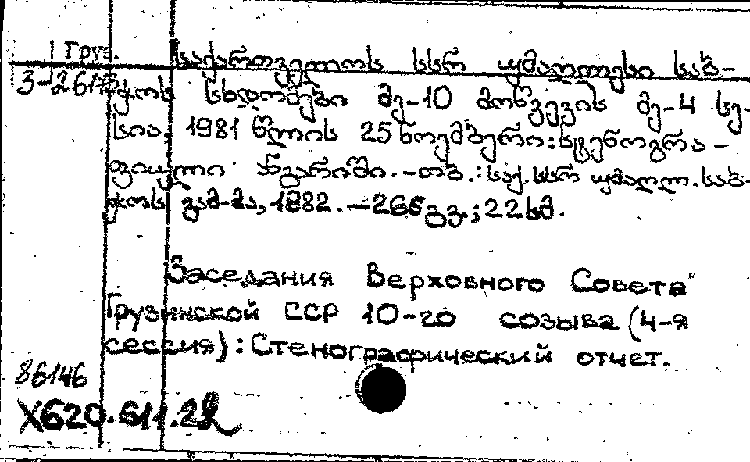 Груз. საქართველოს სსრ უმაღლესი საბ-
3-261 ჭოს სხდომები მე-10 მოწვევის მე-4 სე-
სია, 1981 წლის 25 ნოემბერი: სტენოგრა-
ფიული ანგარიში.-თბ.: საქ. სსრ უმაღლ. საბ-
ჭოს გამ-მა, 1982.-266 გვ.; 22 სმ.
Заседания Верховного Совета
Грузинской ССР 10-го созыва (4-я
сессия): Стенографический отчет.
86146
X620.611.22